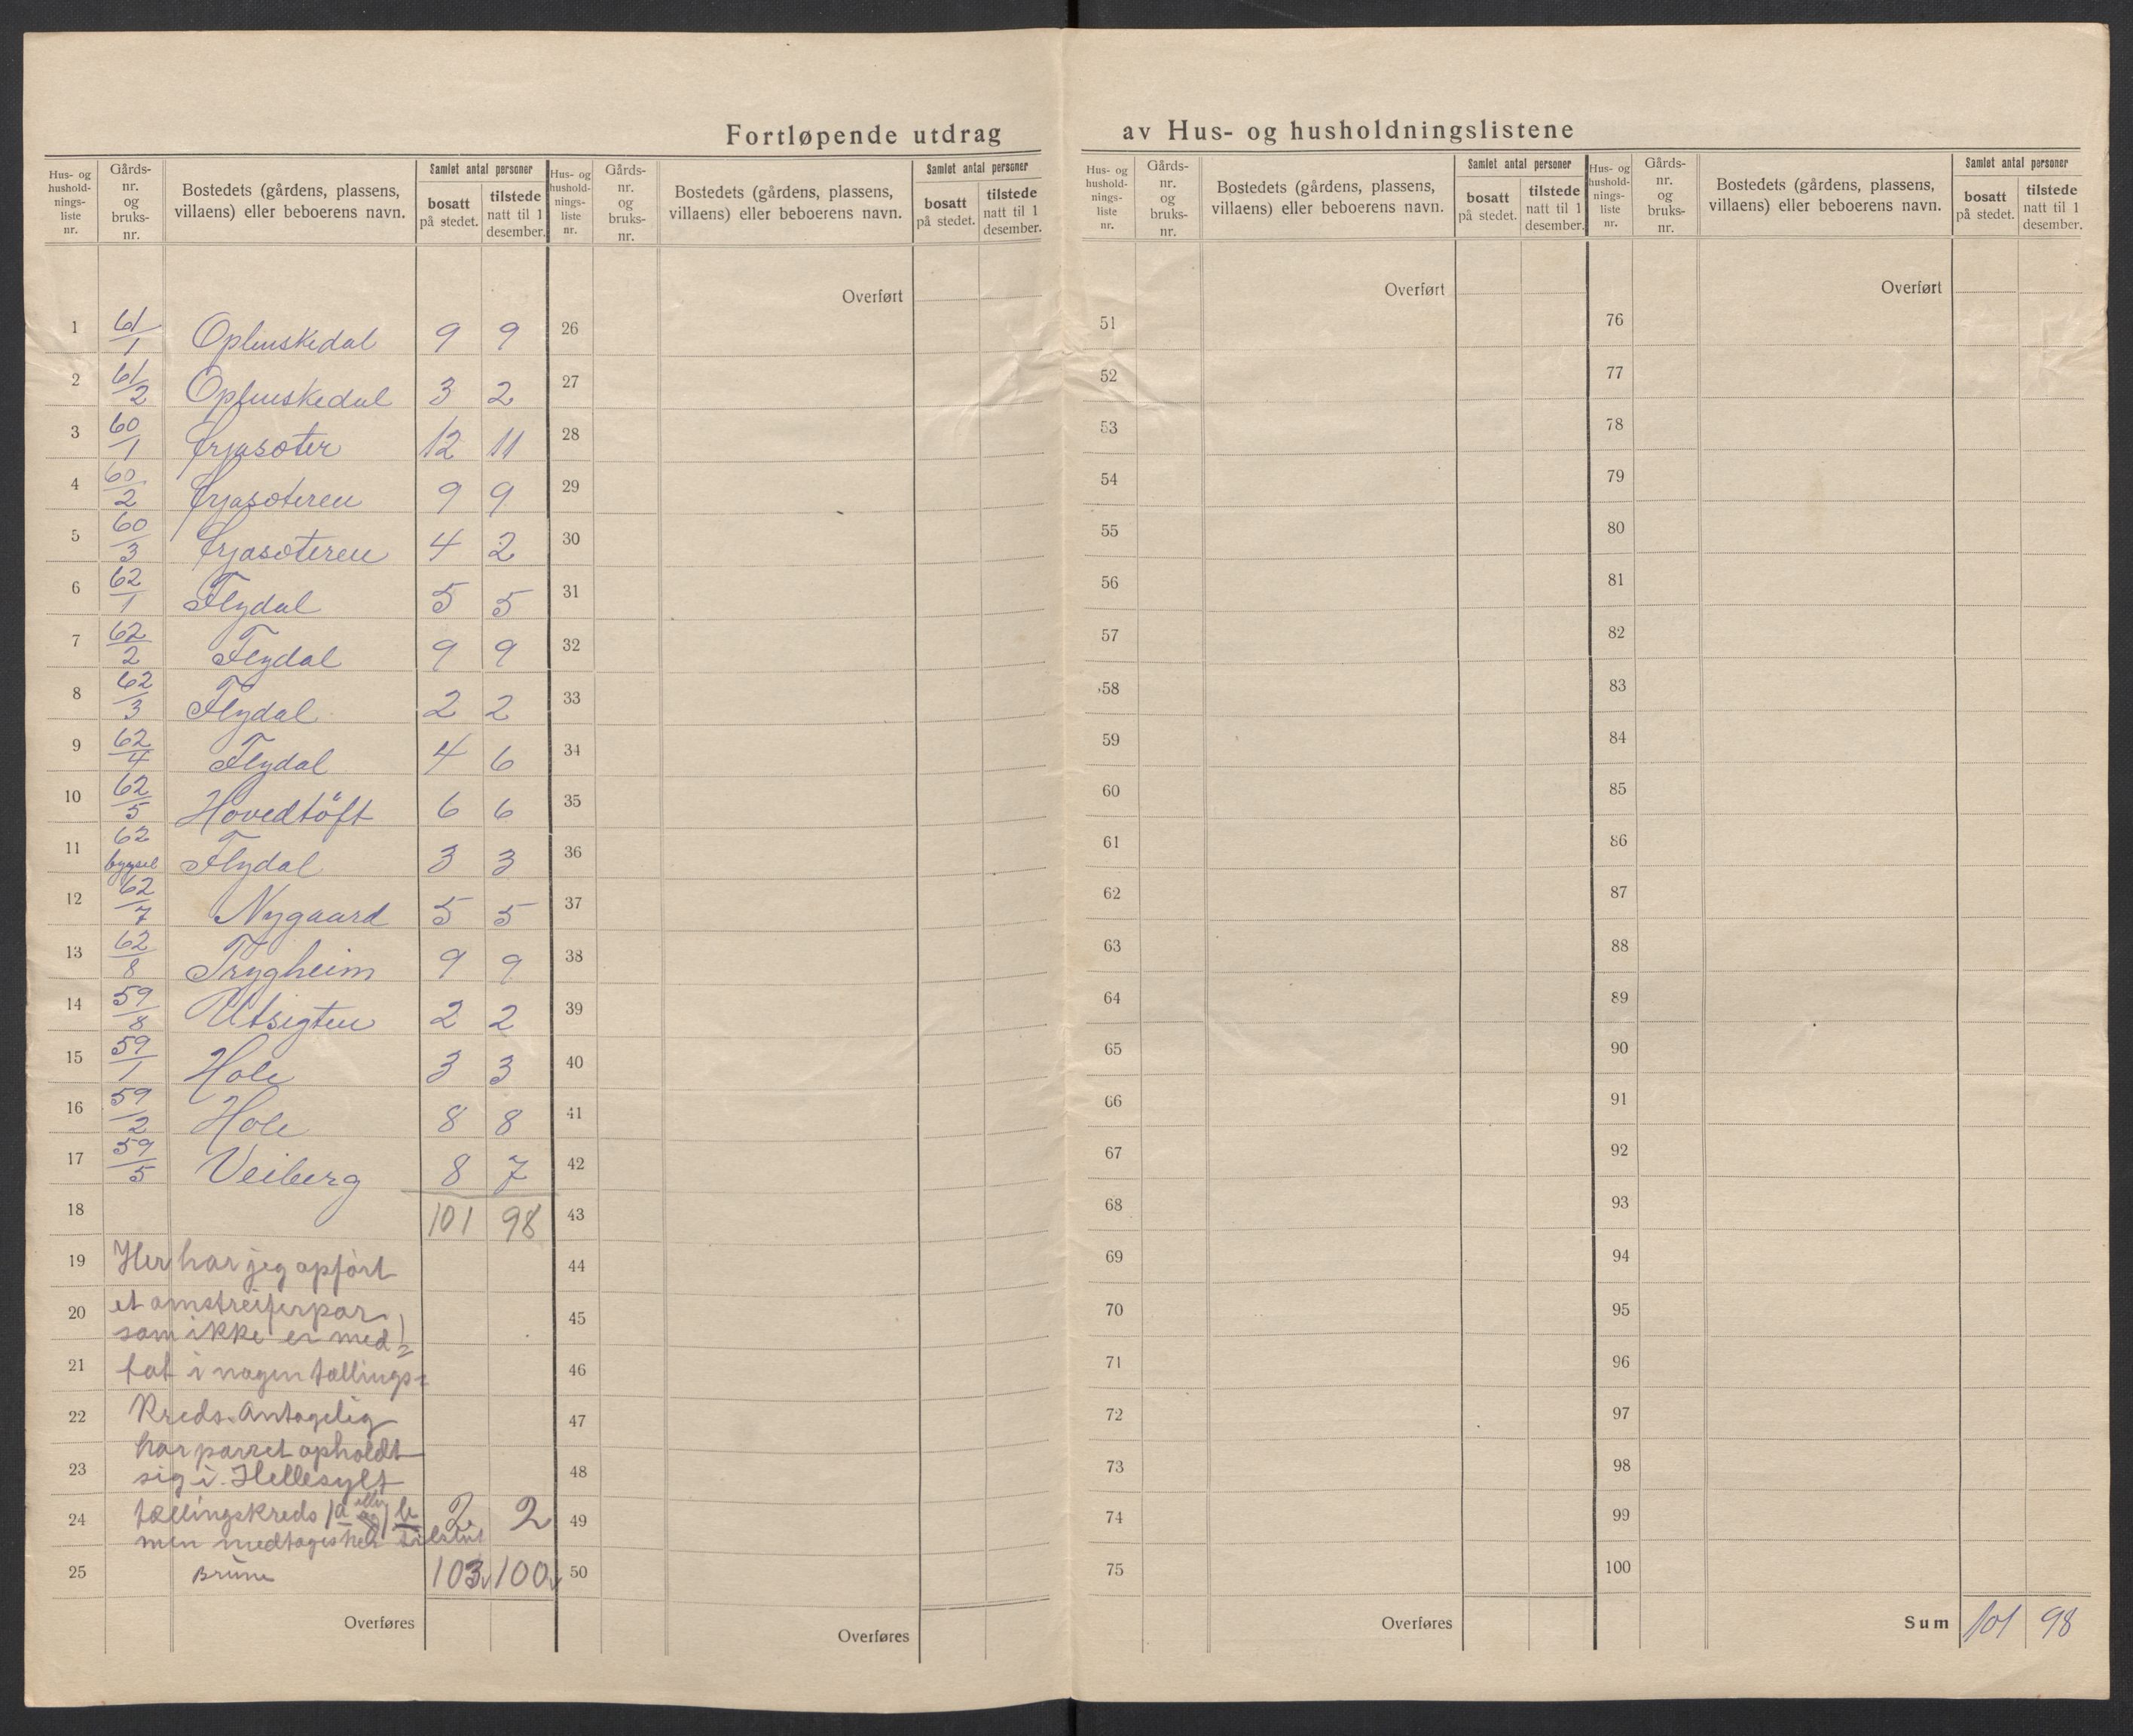 Fortløpende utdrag av Hus- og husholdningslistene
Hus- og hushold-nings-liste nr. Gårds-nr. og bruks-nr. Bostedets (gårdens, plassens, villaens) eller beboerens navn. Samlet antal personer bosatt på stedet. tilstede natt til 1 desember.
Hus- og hushold-nings-liste nr. Gårds-nr. og bruks-nr. Bostedets (gårdens, plassens, villaens) eller beboerens navn. Samlet antal personer bosatt på stedet. tilstede natt til 1 desember.
Hus- og hushold-nings-liste nr. Gårds-nr. og bruks-nr. Bostedets (gårdens, plassens, villaens) eller beboerens navn. Samlet antal personer bosatt på stedet. tilstede natt til 1 desember.
Hus- og hushold-nings-liste nr. Gårds-nr. og bruks-nr. Bostedets (gårdens, plassens, villaens) eller beboerens navn. Samlet antal personer bosatt på stedet. tilstede natt til 1 desember.
Overført Overført Overført
1 61/1 9 9 26 51 76
2 61/2 3 2 27 52 77
3 60/1 12 11 28 53 78
4 60/2 9 9 29 54 79
5 60/3 4 2 30 55 80
6 62/1 Flydal 5 5 31 56 81
7 62/2 Flydal 9 9 32 57 82
8 62/3 Flydal 2 2 33 58 83
9 62/4 Flydal 4 6 34 59 84
10 62/5 Hovedtöft 6 6 35 60 85
11 62 bygsel Flydal 3 3 36 61 86
12 62/7 Nygaard 5 5 37 62 87
13 62/8 Trygheim 9 9 38 63 88
14 59/8 Utsigten 2 2 39 64 89
15 59/1 Hole 3 3 40 65 90
16 59/2 Hole 8 8 41 66 91
17 59/5 Veiberg 8 7 42 67 92
18 101 98 43 68 93
19 Her har jeg opført 44 69 94
20 et omstreiferpar 45 70 95
som ikke er med=
21 tat i nogen tællings= 46 71 96
22 Kreds. Antagelig 47 72 97
har parret opholdt
23 sig i Hellesylt 48 73 98
24 tællingskreds a eller b 2 2 49 74 99
men medtages her tilslut
25 Brune 103 100 50 75 100
Overføres Overføres Overføres Sum 101 98